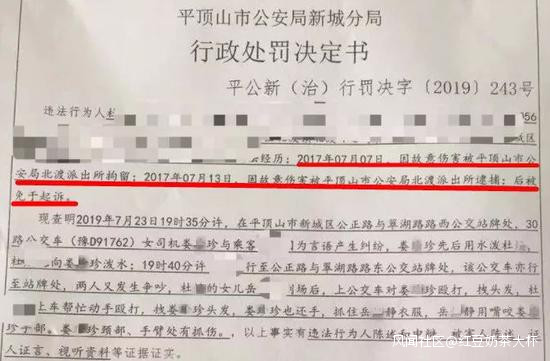 平顶山市公安局新城分局
行政处罚决定书
平公新（治）行罚决字〔2019〕243号
违法行为人 056
城区
经历：2017年07月07日，因故意伤害被平顶山市公
安局北渡派出所拘留；2017年07月13日，因故意伤害被平顶山市公安局北渡派出所逮捕；后被
免于起诉。
现查明2019年7月23日19时35分许，在平顶山市新城区公正路与翠湖路路西公交站牌处，30
路公交车（豫D91762）女司机娄 珍与乘客 为言语产生纠纷，娄 珍先后用水泼杜
杜 向娄 珍泼水；19时40分许 行至公正路与翠湖路路东公交站牌处，该公交车亦行
至站牌处，两人又发生争吵，杜 的女儿岳 到场后，上公交车对娄 珍殴打，拽头发，杜
上车帮忙动手殴打，拽娄 珍头发，娄 珍也还手，抓住岳 静衣服，岳 静用嘴咬娄
珍手部。娄 珍颈部、手臂处有抓伤。以上事实有违法行为人陈述和申辩、被害人陈述、
证人证言、视听资料等证据证实。
风闻社区@红豆奶茶大杯